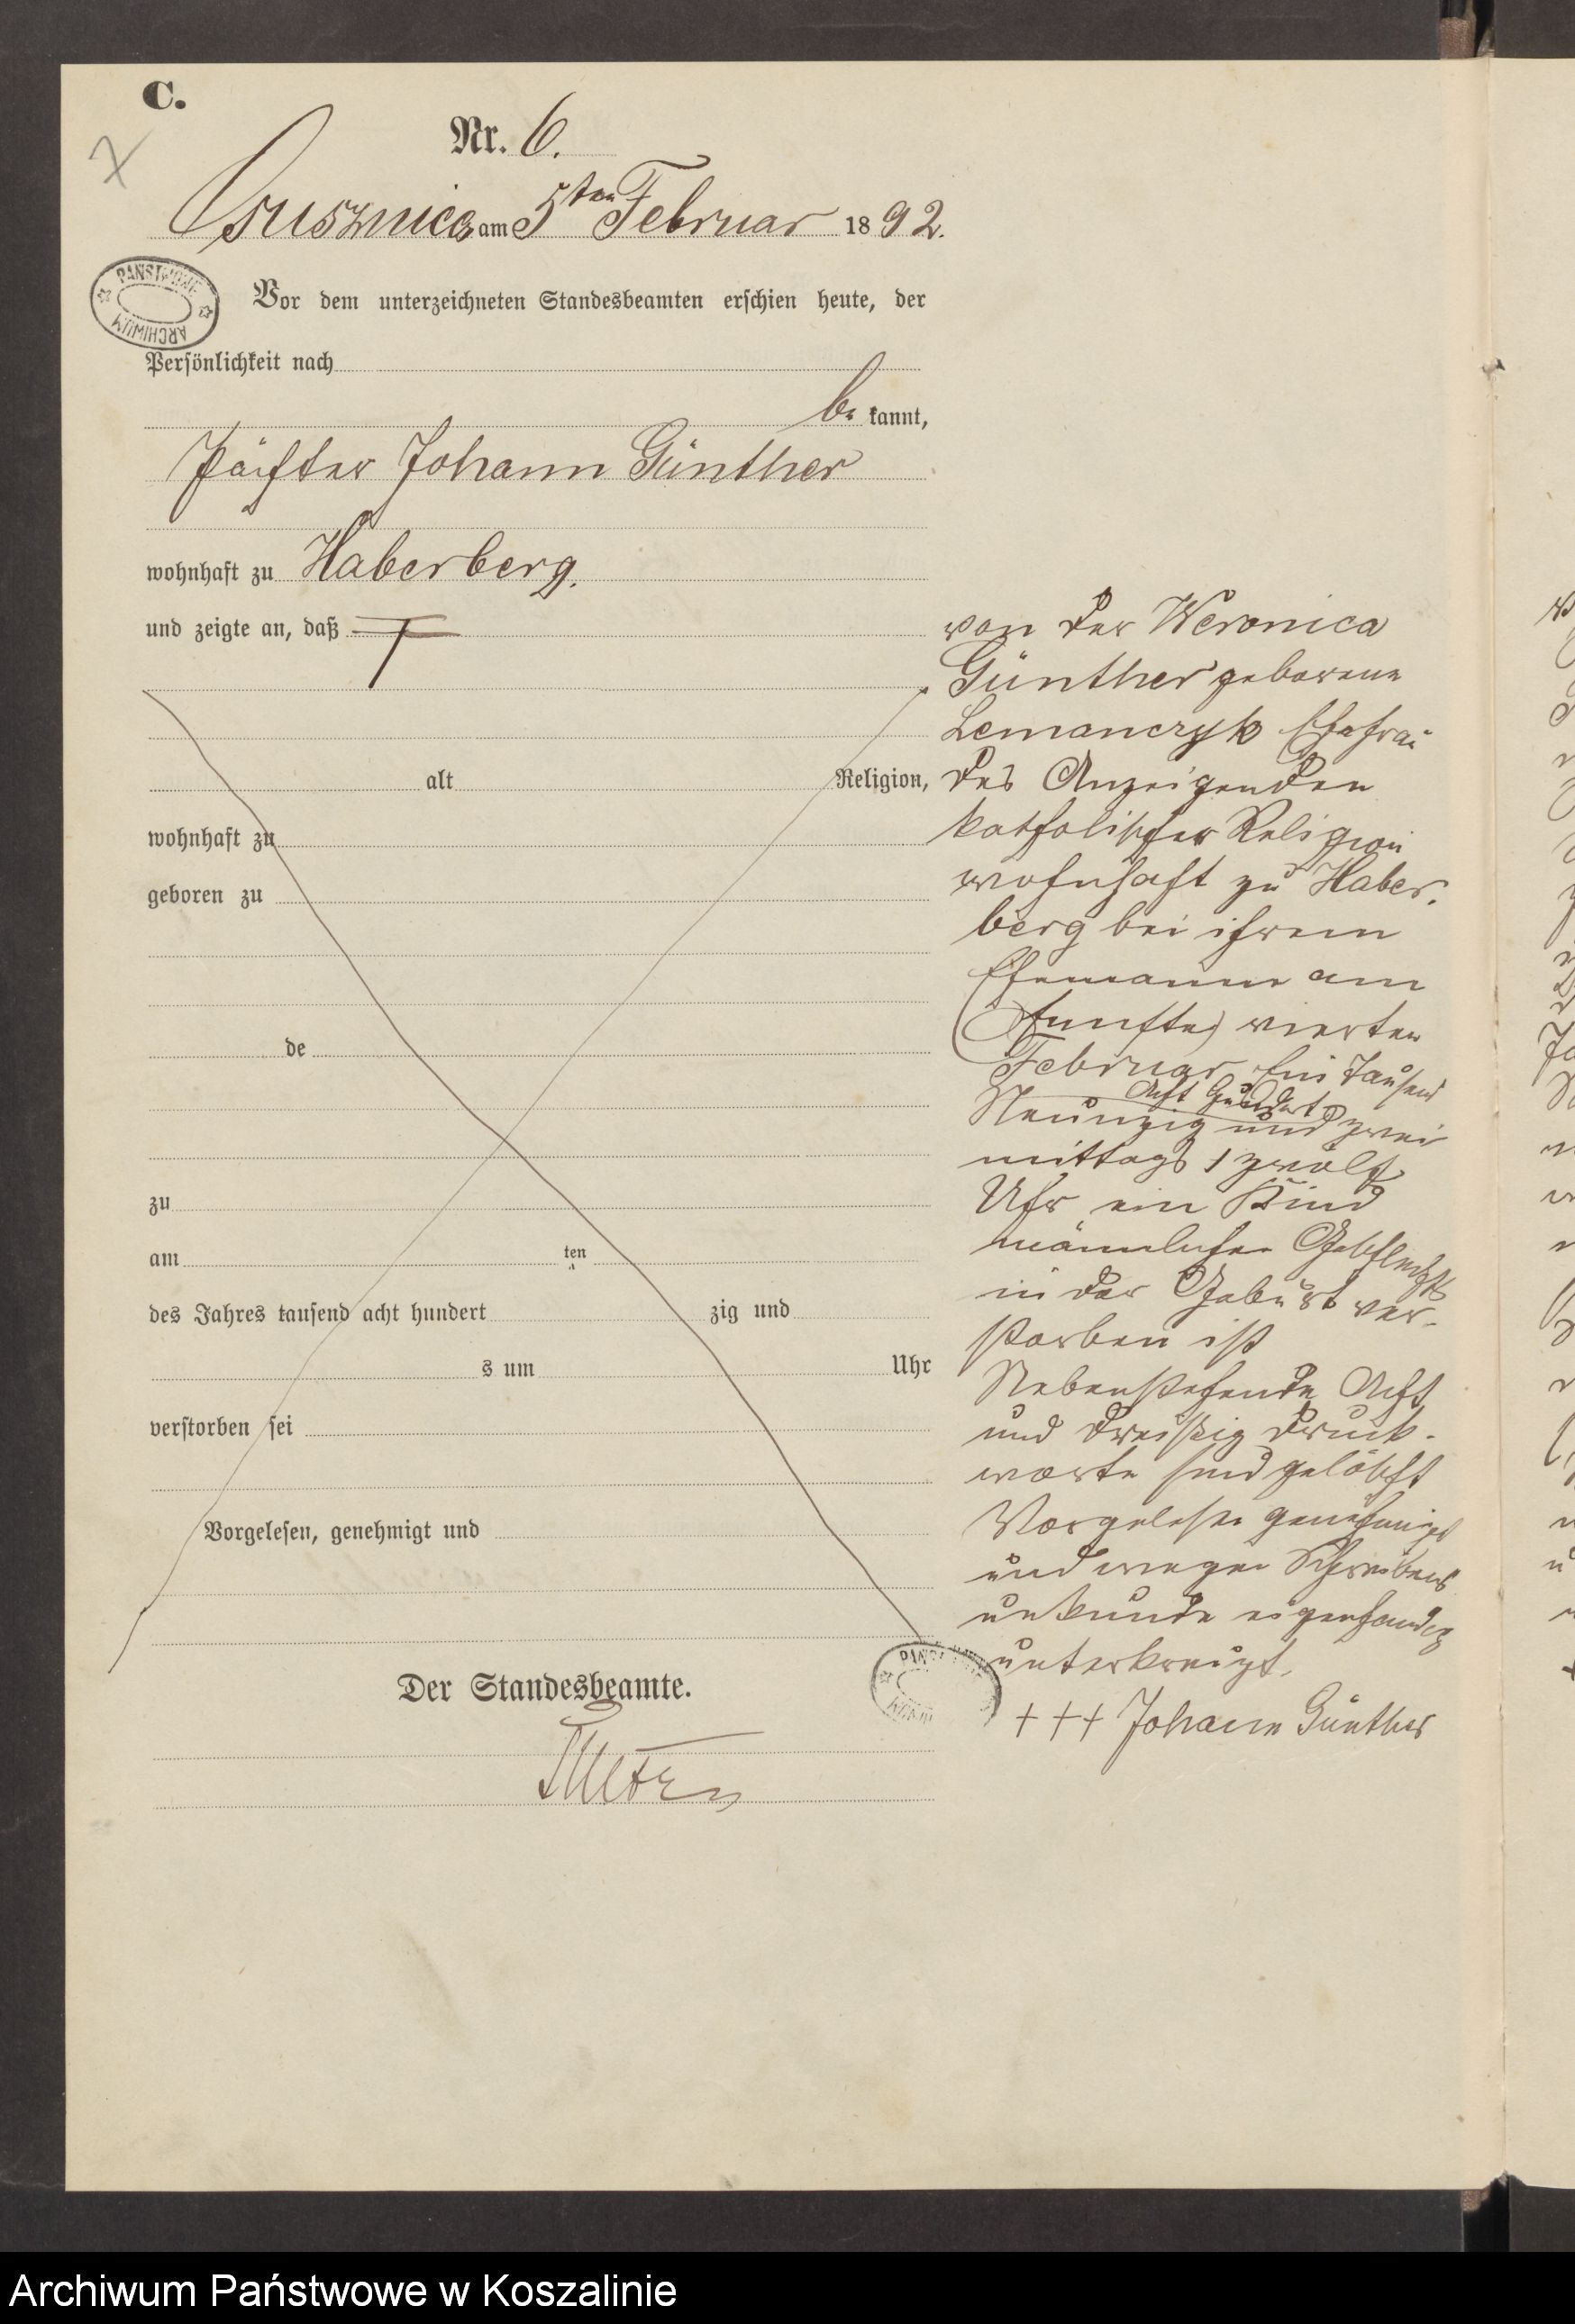 C.
Nr. 6.
am 5ten Februar 1892.
PAŃSTWOWE ARCHIWUM
Vor dem unterzeichneten Standesbeamten erschien heute, der
Persönlichkeit nach
be kannt,
Johann Günther
wohnhaft zu Haberberg.
und zeigte an, daß
alt Religion,
wohnhaft zu
geboren zu
de
zu
am ten
des Jahres tausend acht hundert zig und
s um Uhr
verstorben sei
Vorgelesen, genehmigt und
Der Standesbeamte.
von der Weronica
Günther geborene
Lemanczyk Ehefrau
des Anzeigenden
katholischer Religion
wohnhaft zu Haber.
berg bei ihrem
Ehemanne am
(fünften) vierten
Februar Ein Tausend
Acht Hundert
Neunzig und zwei
mittags 1 zwölf
Uhr ein Kind
männlichen Geschlechts
in der Geburt ver-
storben ist
Nebenstehende Acht
und dreißig Druck-
worte sind gelöscht
Vorgelesen genehmigt
und wegen Schreibens
unkunde eigenhändig
unterkreuzt.
+++ Johann Günther
Archiwum Państwowe w Koszalinie